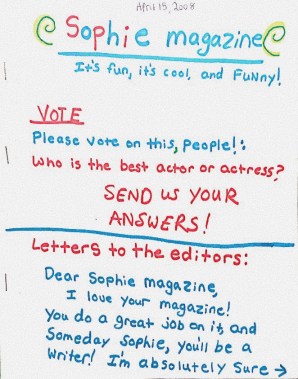 April 15, 2008
Sophie magazine
It's fun, it's cool, and FuNny!
VOTE
Please vote on this, people!:
Who is the best actor or actress?
SEND US YOUR
ANSWERS!
Letters to the editors:
Dear Sophie magazine,
I love your magazine!
You do a great job on it, and
Someday Sophie, you'll be a
Writer! I'm absolutely Sure →